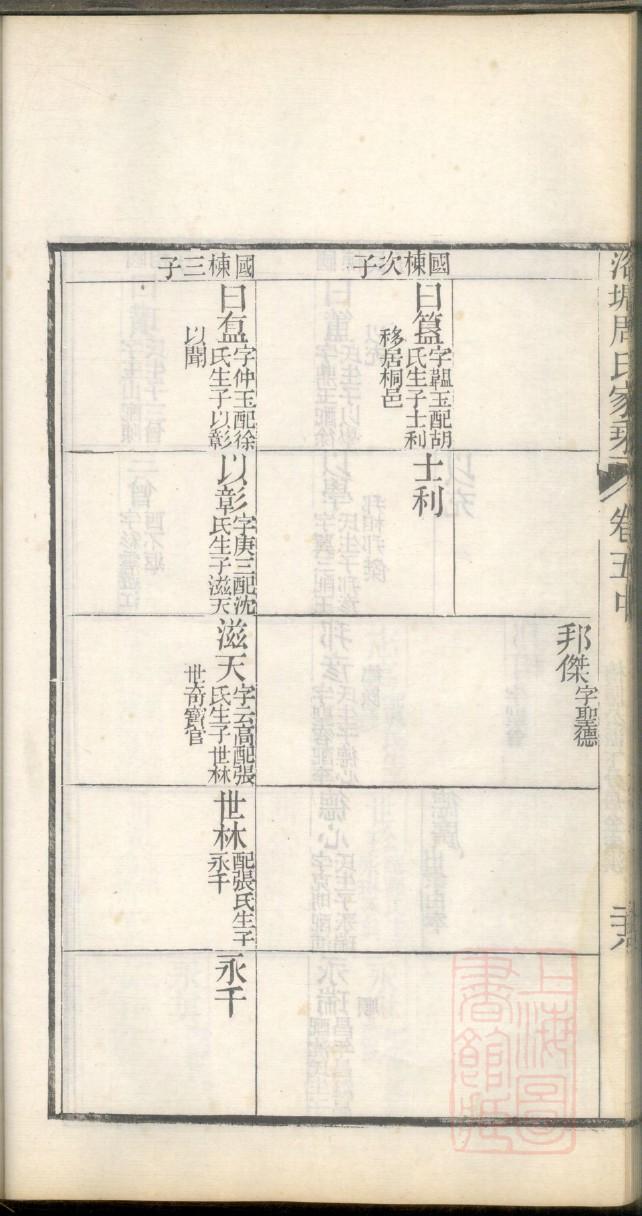 周氏家乘
卷五中
邦傑
字聖德
國棟次子
曰簋
字韞玉配胡
氏生子士利
移居桐邑
士利
國棟三子
曰盉
字仲玉配徐
氏生子以彰
以聞
以彰
字庚三配沈
氏生子滋天
滋天
字云高配張
氏生子世林
世奇寳官
世林
配張氏生子
永千
永千
上海圖
書館藏